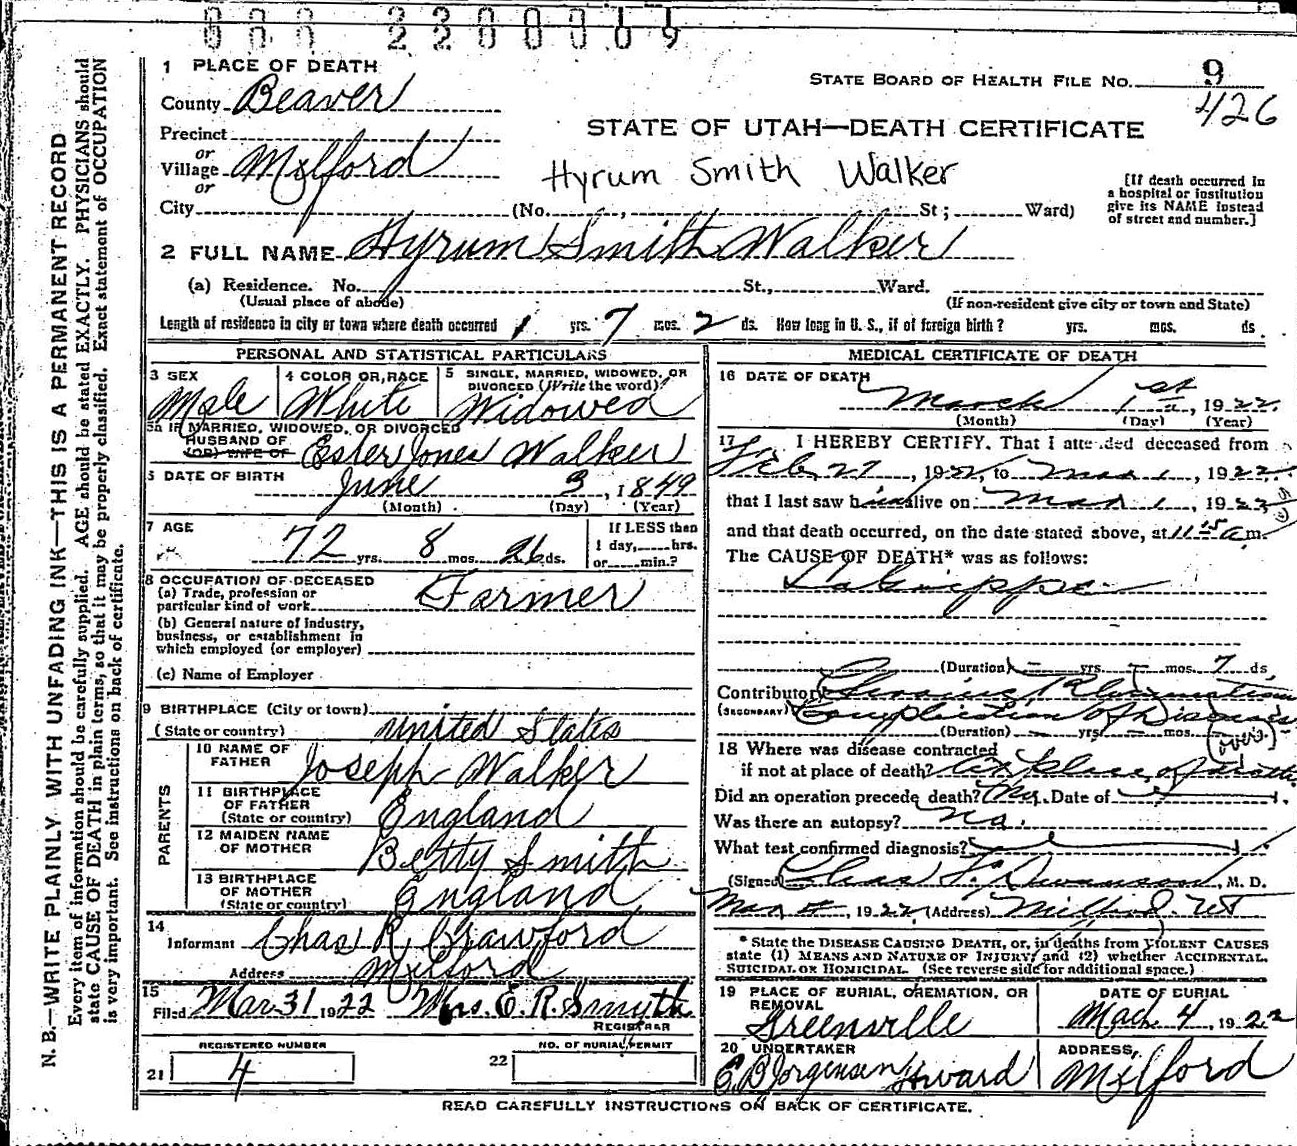 000 2200019
1 PLACE OF DEATH
STATE BOARD OF HEALTH FILE No. 9
426
County Beaver
STATE OF UTAH—DEATH CERTIFICATE
Precinct
or
Village Milford
or
Hyrum Smith Walker
[If death occurred in
a hospital or institution
give its NAME instead
of street and number.]
City (No. , St ; Ward)
2 FULL NAME Hyrum Smith Walker
(a) Residence. No. St., Ward.
(Usual place of abode) (If non-resident give city or town and State)
Length of residence in city or town where death occurred 1 yrs. 7 mos. 2 ds. How long in U. S., if of foreign birth? yrs. mos. ds.
PERSONAL AND STATISTICAL PARTICULARS
3 SEX
Male
4 COLOR OR RACE
White
5 SINGLE, MARRIED, WIDOWED, OR
DIVORCED (Write the word)
Widowed
5a IF MARRIED, WIDOWED, OR DIVORCED
HUSBAND OF
(OR) WIFE OF Ester Jones Walker
6 DATE OF BIRTH
June 3, 1849
(Month) (Day) (Year)
7 AGE
72 yrs. 8 mos. 26 ds.
If LESS than
1 day, hrs.
or min.?
8 OCCUPATION OF DECEASED
(a) Trade, profession or
particular kind of work Farmer
(b) General nature of industry,
business, or establishment in
which employed (or employer)
(c) Name of Employer
9 BIRTHPLACE (City or town)
(State or country) United States
PARENTS
10 NAME OF
FATHER Joseph Walker
11 BIRTHPLACE
OF FATHER
(State or country) England
12 MAIDEN NAME
OF MOTHER Betty Smith
13 BIRTHPLACE
OF MOTHER
(State or country) England
14
Informant Chas R. Crawford
Address Milford
15
Filed Mar 31 1922 Mrs. E. R. Smyth
REGISTRAR
REGISTERED NUMBER
21 4
NO. OF BURIAL PERMIT
22
MEDICAL CERTIFICATE OF DEATH
16 DATE OF DEATH
March 1st, 1922
(Month) (Day) (Year)
17 I HEREBY CERTIFY, That I attended deceased from
Feb 27, 1922, to Mar 1, 1922
that I last saw him alive on Mar 1, 1922
and that death occurred, on the date stated above, at 11 15 a m.
The CAUSE OF DEATH* was as follows:
La Grippe
(Duration) – yrs. – mos. 7 ds.
Contributory Rheumatism
(SECONDARY) Complication of Diseases
(Duration) – yrs. – mos.
(over.)
18 Where was disease contracted
if not at place of death? at place of death
Did an operation precede death? No. Date of
Was there an autopsy? No.
What test confirmed diagnosis?
(Signed) Chas F. Swanson, M. D.
1922 (Address) Milford. Ut
* State the DISEASE CAUSING DEATH, or, in deaths from VIOLENT CAUSES
state (1) MEANS AND NATURE OF INJURY; and (2) whether ACCIDENTAL,
SUICIDAL OR HOMICIDAL. (See reverse side for additional space.)
19 PLACE OF BURIAL, CREMATION, OR
REMOVAL
Greenville
DATE OF BURIAL
Mach 4, 1922
20 UNDERTAKER
E B Jorgensen Howard
ADDRESS,
Milford
READ CAREFULLY INSTRUCTIONS ON BACK OF CERTIFICATE.
N. B.—WRITE PLAINLY, WITH UNFADING INK—THIS IS A PERMANENT RECORD
Every item of information should be carefully supplied. AGE should be stated EXACTLY. PHYSICIANS should
state CAUSE OF DEATH in plain terms, so that it may be properly classified. Exact statement of OCCUPATION
is very important. See instructions on back of certificate.